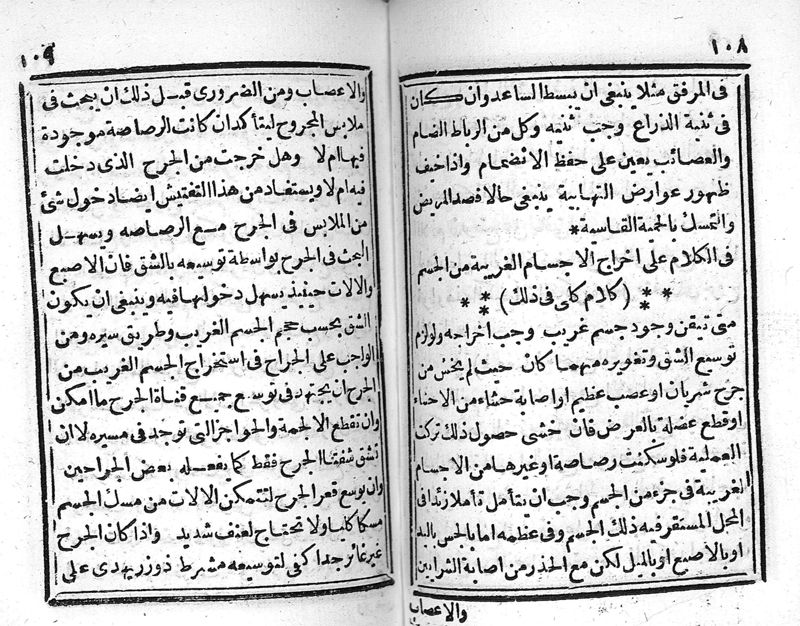 ١٠٨
فى المرفق مثلا ينبغى ان يبسط الساعد وان كان
فى ثنية الذراع وجب ثنيه وكل من الرباط الضام
والعصائب يعين على حفظ الانضمام واذا خيف
ظهور عوارض التهابية ينبغى حالا فصد المريض
والتمسك بالحمية القاسية *
فى الكلام على اخراج الاجسام الغريبة من الجسم
* * * (كلام كلى فى ذلك) * * *
متى تيقن وجود جسم غريب وجب اخراجه ولو لزم
توسيع الشق وتغويره مهما كان حيث لم يخش من
جرح شريان او عصب عظيم او اصابة حشاء من الاحشاء
او قطع عضلة بالعرض فان خشى حصول ذلك تركت
العملية فلو سكنت رصاصة او غيرها من الاجسام
الغريبة فى جزء من الجسم وجب ان يتأمل تأملا زئدا فى
المحل المستقر فيه ذلك الجسم وفى عظمه اما بالجس باليد
او بالاصبع او بالميل لكن مع الحذر من اصابة الشرايين
والاعصاب
١٠٩
والاعصاب ومن الضرورى قبل ذلك ان يبحث فى
ملابس المجروح ليتأكد ان كانت الرصاصة موجودة
فيها ام لا وهل خرجت من الجرح الذى دخلت
فيه ام لا ويستفاد من هذا التفتيش ايضا دخول شئ
من الملابس فى الجرح مع الرصاصه ويسهل
البحث فى الجرح بواسطة توسيعه بالشق فان الاصبع
والالات حينيذ يسهل دخولها فيه وينبغى ان يكون
الشق بحسب حجم الجسم الغريب وطريق سيره ومن
الواجب على الجراح فى استخراج الجسم الغريب من
الجرح ان يجتهد فى توسع جميع قناة الجرح ما امكن
وان تقطع الالجمة والحواجز التى توجد فى مسيره لا ان
تشق شفتا الجرح فقط كما يفعله بعض الجراحين
وان يوسع قعر الجرح لتتمكن الالات من مسك الجسم
مسكا كليا ولا تحتاج لعنف شديد واذا كان الجرح
غير غائر جدا كفى لتوسيعه مشرط ذو زر يهدى على